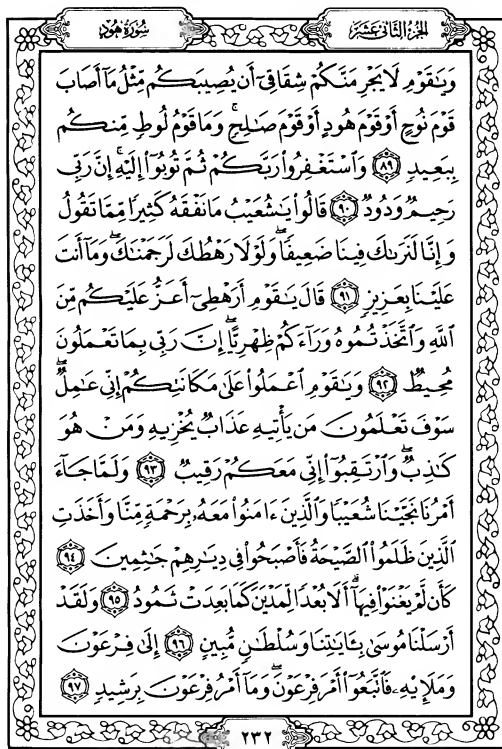 سُورَةُ هُودٍ
الجُزْءُ الثَّانِي عَشَرَ
وَيَٰقَوْمِ لَا يَجْرِمَنَّكُمْ شِقَاقِىٓ أَن يُصِيبَكُم مِّثْلُ مَآ أَصَابَ
قَوْمَ نُوحٍ أَوْ قَوْمَ هُودٍ أَوْ قَوْمَ صَٰلِحٍ ۚ وَمَا قَوْمُ لُوطٍ مِّنكُم
بِبَعِيدٍ ٨٩ وَٱسْتَغْفِرُوا۟ رَبَّكُمْ ثُمَّ تُوبُوٓا۟ إِلَيْهِ ۚ إِنَّ رَبِّى
رَحِيمٌ وَدُودٌ ٩٠ قَالُوا۟ يَٰشُعَيْبُ مَا نَفْقَهُ كَثِيرًا مِّمَّا تَقُولُ
وَإِنَّا لَنَرَىٰكَ فِينَا ضَعِيفًا ۖ وَلَوْلَا رَهْطُكَ لَرَجَمْنَٰكَ ۖ وَمَآ أَنتَ
عَلَيْنَا بِعَزِيزٍ ٩١ قَالَ يَٰقَوْمِ أَرَهْطِىٓ أَعَزُّ عَلَيْكُم مِّنَ
ٱللَّهِ وَٱتَّخَذْتُمُوهُ وَرَآءَكُمْ ظِهْرِيًّا ۖ إِنَّ رَبِّى بِمَا تَعْمَلُونَ
مُحِيطٌ ٩٢ وَيَٰقَوْمِ ٱعْمَلُوا۟ عَلَىٰ مَكَانَتِكُمْ إِنِّى عَٰمِلٌ ۖ
سَوْفَ تَعْلَمُونَ مَن يَأْتِيهِ عَذَابٌ يُخْزِيهِ وَمَنْ هُوَ
كَٰذِبٌ ۖ وَٱرْتَقِبُوٓا۟ إِنِّى مَعَكُمْ رَقِيبٌ ٩٣ وَلَمَّا جَآءَ
أَمْرُنَا نَجَّيْنَا شُعَيْبًا وَٱلَّذِينَ ءَامَنُوا۟ مَعَهُۥ بِرَحْمَةٍ مِّنَّا وَأَخَذَتِ
ٱلَّذِينَ ظَلَمُوا۟ ٱلصَّيْحَةُ فَأَصْبَحُوا۟ فِى دِيَٰرِهِمْ جَٰثِمِينَ ٩٤
كَأَن لَّمْ يَغْنَوْا۟ فِيهَآ ۗ أَلَا بُعْدًا لِّمَدْيَنَ كَمَا بَعِدَتْ ثَمُودُ ٩٥ وَلَقَدْ
أَرْسَلْنَا مُوسَىٰ بِـَٔايَٰتِنَا وَسُلْطَٰنٍ مُّبِينٍ ٩٦ إِلَىٰ فِرْعَوْنَ
وَمَلَإِي۟هِۦ فَٱتَّبَعُوٓا۟ أَمْرَ فِرْعَوْنَ ۖ وَمَآ أَمْرُ فِرْعَوْنَ بِرَشِيدٍ ٩٧
٢٣٢